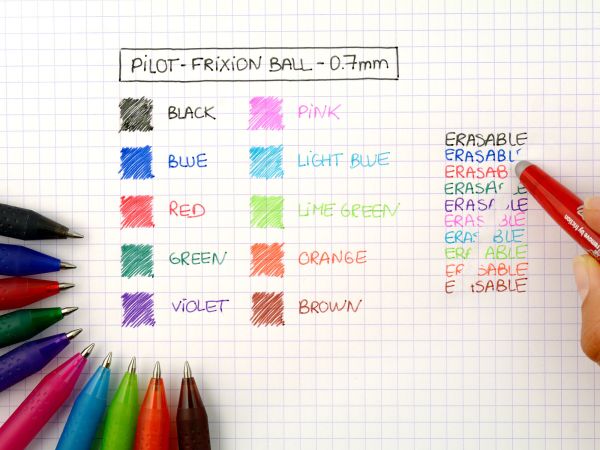 PILOT-FRIXION BALL - 0.7mm
BLACK
BLUE
RED
GREEN
VIOLET
PINK
LIGHT BLUE
LIME GREEN
ORANGE
BROWN
ERASABLE
ERASABL
ERASAB
ERASA LE
ERASA BLE
ERAS ABLE
ERAS BLE
ERA ABLE
ER SABLE
E SABLE
remove by friction